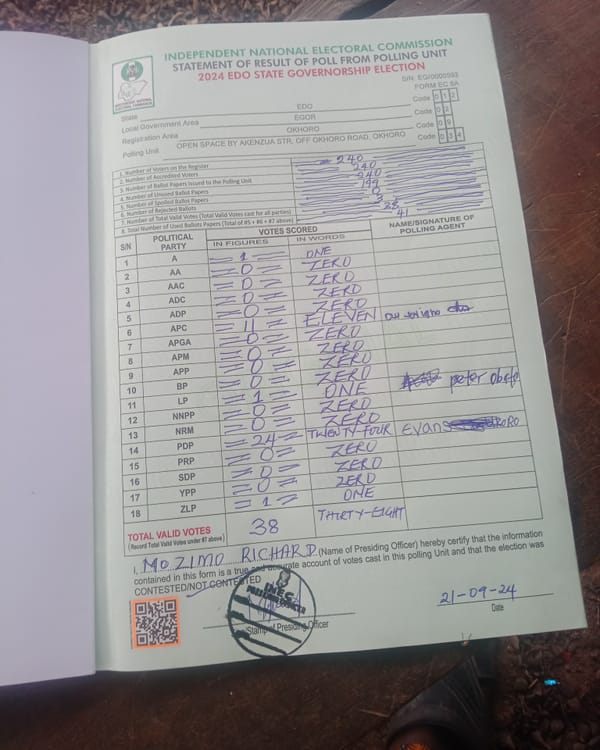 INDEPENDENT NATIONAL ELECTORAL COMMISSION
STATEMENT OF RESULT OF POLL FROM POLLING UNIT
2024 EDO STATE GOVERNORSHIP ELECTION
S/N: EG/0000593
FORM EC 8A
State EDO Code 012
Local Government Area EGOR Code 02
Registration Area OKHORO Code 09
Polling Unit OPEN SPACE BY AKENZUA STR, OFF OKHORO ROAD, OKHORO Code 034
1. Number of Voters on the Register 240
2. Number of Accredited Voters 240
3. Number of Ballot Papers Issued to the Polling Unit 240
4. Number of Unused Ballot Papers 199
5. Number of Spoiled Ballot Papers 0
6. Number of Rejected Ballots 3
7. Number of Total Valid Votes (Total Valid Votes cast for all parties) 38
8. Total Number of Used Ballots Papers (Total of #5 + #6 + #7 above) 41
S/N POLITICAL PARTY VOTES SCORED NAME/SIGNATURE OF POLLING AGENT
IN FIGURES IN WORDS
1 A 1 ONE
2 AA 0 ZERO
3 AAC 0 ZERO
4 ADC 0 ZERO
5 ADP 0 ZERO
6 APC 11 ELEVEN
7 APGA 0 ZERO
8 APM 0 ZERO
9 APP 0 ZERO
10 BP 0 ZERO
11 LP 1 ONE peter
12 NNPP 0 ZERO
13 NRM 0 ZERO
14 PDP 24 TWENTY-FOUR Evans
15 PRP 0 ZERO
16 SDP 0 ZERO
17 YPP 0 ZERO
18 ZLP 1 ONE
TOTAL VALID VOTES 38 THIRTY-EIGHT
(Record Total Valid Votes under #7 above)
I, MOZIMO RICHARD (Name of Presiding Officer) hereby certify that the information
contained in this form is a true and accurate account of votes cast in this polling Unit and that the election was
CONTESTED/NOT CONTESTED
INEC
PRESIDING OFFICER
Stamp of Presiding Officer
21-09-24
Date